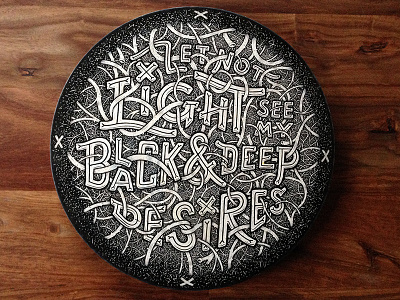 LET NOT
LIGHT SEE
MY
BLACK & DEEP
DESIRES